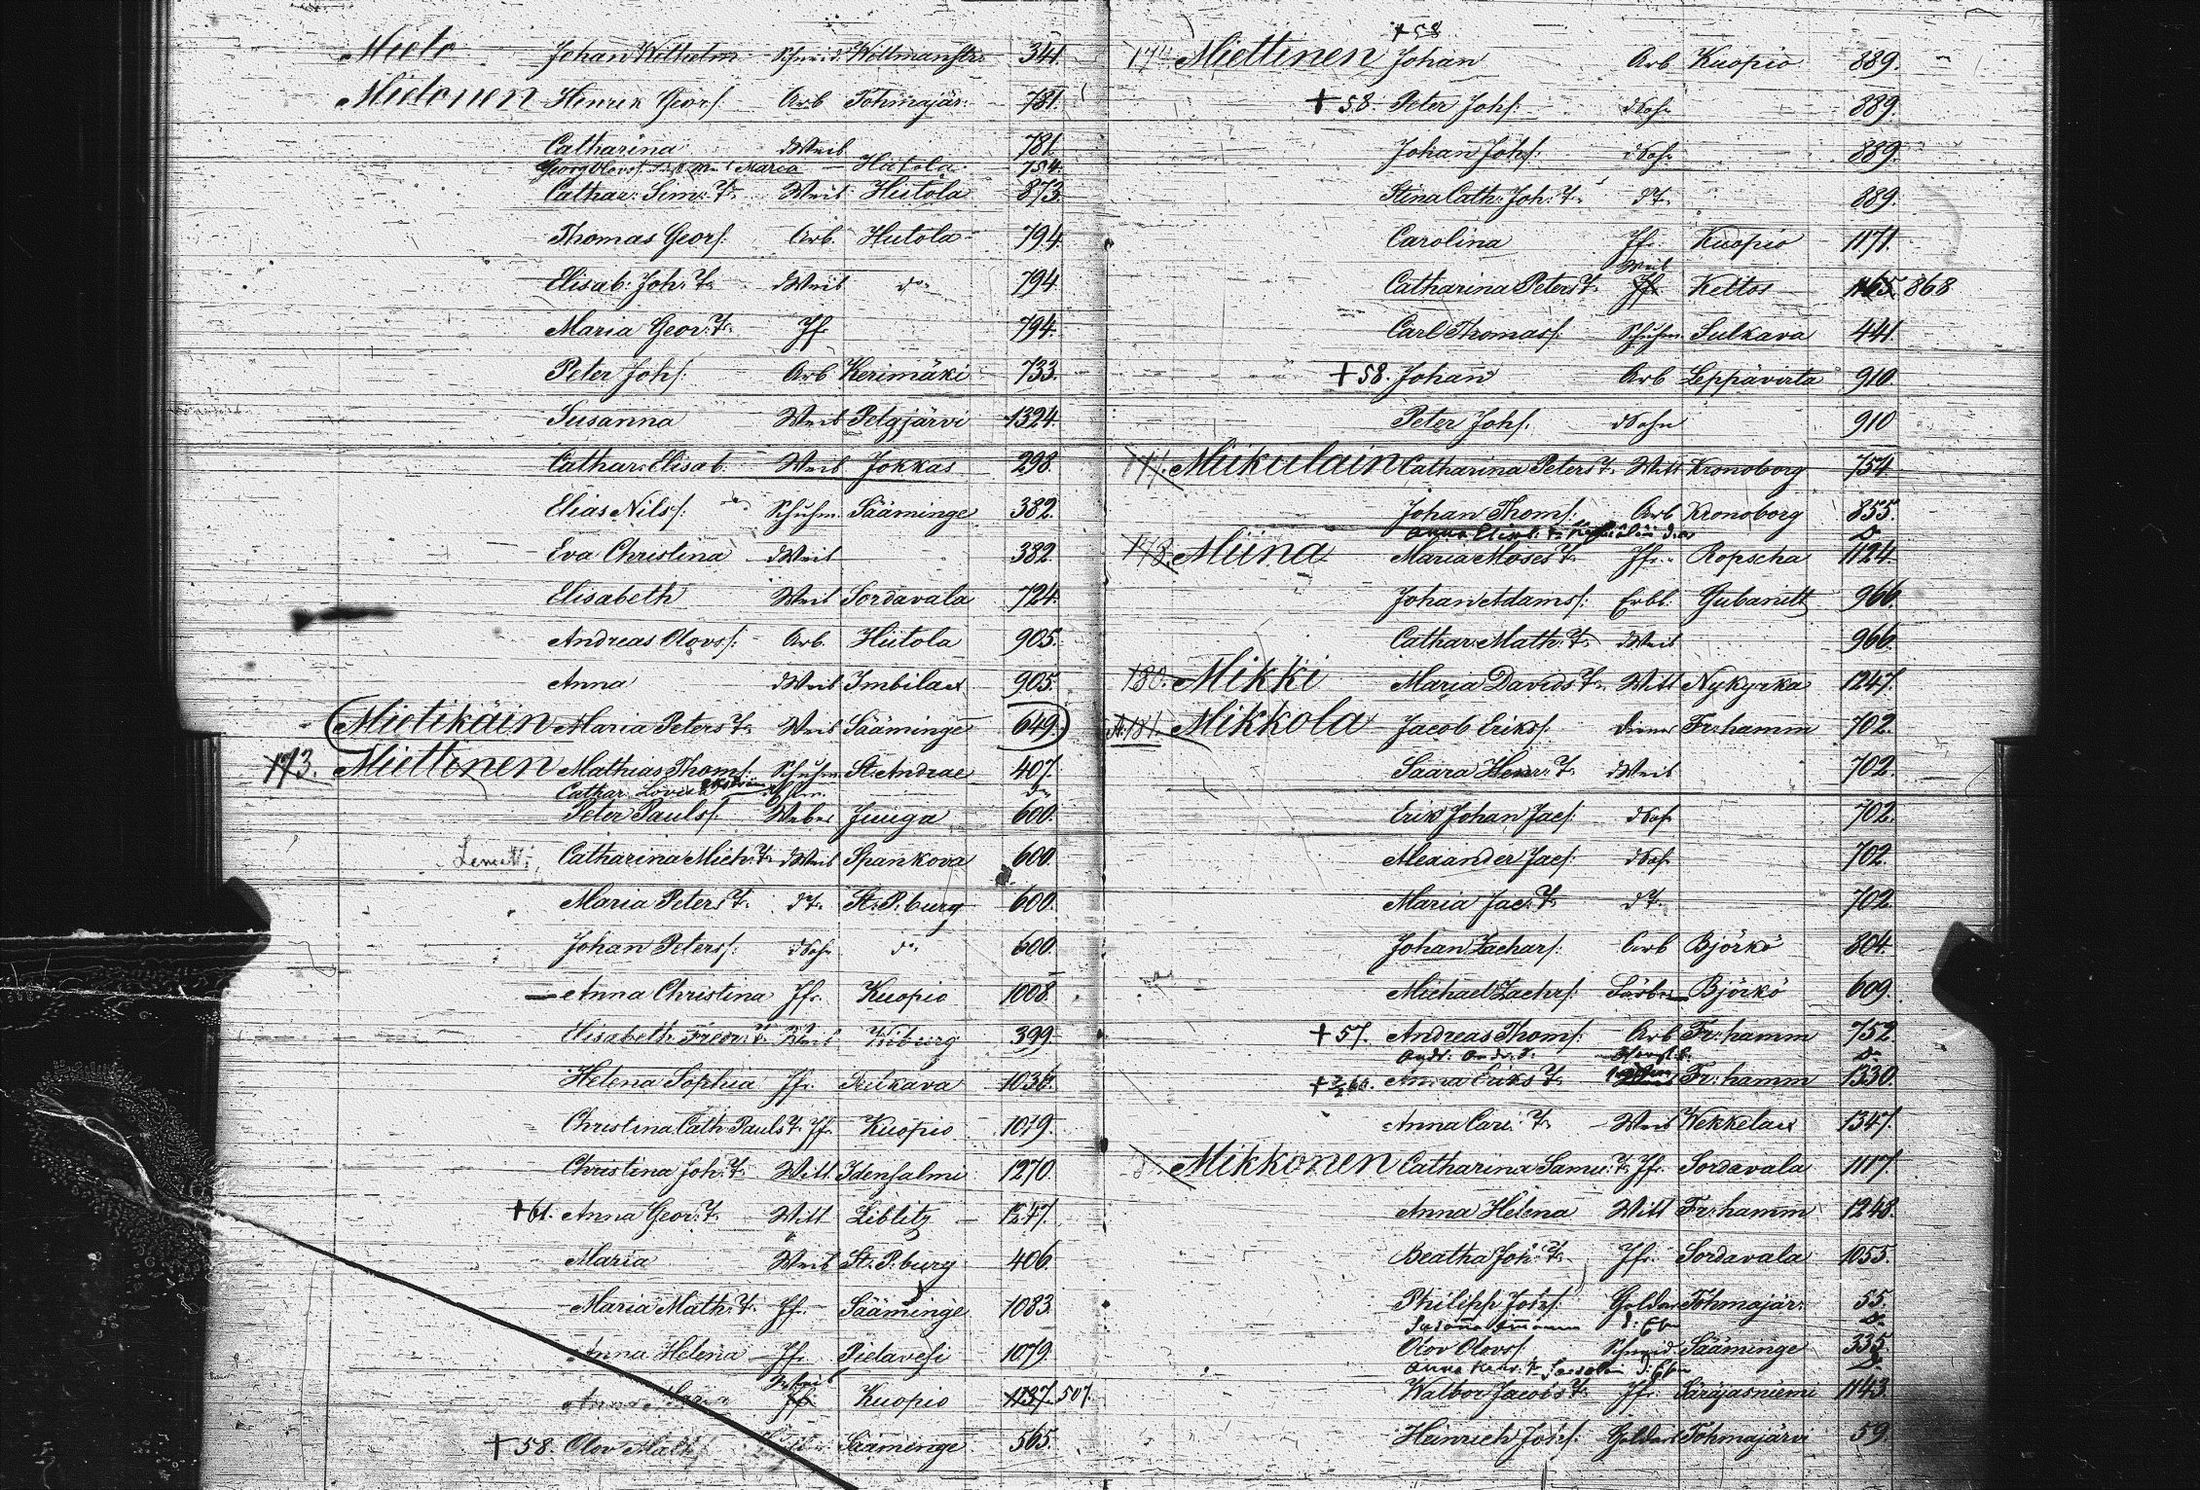 Mieto Johan Wilhelm Schneid. Willmanstr. 341.
Mietonen Henrik Georgs. Arb Tohmajär. 781.
Catharina dWeib 781.
Georg Olovs. Maria Hiitola 754.
Cathar. Sim. T. Weib Hiitola 873
Thomas Geors. Arb. Hiitola 794
Elisab. Joh. T. dWeib do 794
Maria Geor. T. Jfr 794.
Peter Johs. Arb Kerimäki 733.
Susanna Weib Pelgjärvi 1324.
Cathar. Elisab. Weib Jokkas 298.
Elias Nils. Schuhm. Sääminge 382.
Eva Christina dWeib 382.
Elisabeth Weib Sordavala 724.
Andreas Olovs. Arb. Hiitola 905.
Anna dWeib Imbilax 905.
Mietikäin Maria Peters T. Weib Sääminge 649.
173. Miettinen Mathias Thoms. Schuhm St. Andrae 407.
Cathar. Lovisa do
Peter Pauls. Weber Juuga 600.
Catharina Mich. T. dWeib Spankova 600.
Maria Peters T. dT. St. P. burg 600.
Johan Peters. dSohn do 600.
Anna Christina Jfr. Kuopio 1008.
Elisabeth Fredr. T. Weib Wiburg 399.
Helena Sophia Jfr. Sulkava 1036.
Christina Cath. Pauls T. Jfr Kuopio 1079.
Christina Joh. T. Witt. Idensalmi 1270.
+61. Anna Geor. T. Witt Liblitz 1247.
Maria Weib St. P. burg 406.
Maria Math. T. Jfr. Sääminge 1083.
Anna Helena Jfr. Pielavesi 1079.
Anna Maria Jfr Kuopio 1137. 507.
+58. Olov Math. Sääminge 565.
+58
174 Miettinen Johan Arb Kuopio 889.
+58. Peter Johs. dSohn 889.
Johan Johs. dSohn 889.
Stina Cath. Joh. T. dT. 889.
Carolina Jfr. Kuopio 1171.
Weib
Catharina Peters T. Jfr Keltos 1165. 868
Carl Thomass. Schuhm. Sulkava 441.
+58. Johan Arb Leppävirta 910.
Peter Johs. dSohn 910
177. Miikulain Catharina Peters T. Witt Kronoborg 754
Johan Thoms. Arb Kronoborg 855.
Anna Elisab. T. do
178. Miina Maria Moses T. Jfr. Ropscha 1124.
Johan Adams. Erbl. Gubanitz 966.
Cathar. Math. T. dWeib 966.
180. Mikki Maria Davids T. Witt Nykyrka 1247.
A. 181. Mikkola Jacob Eriks. Diener Fr:hamm 702.
Saara Henr. T. dWeib 702.
Erik Johan Jacs. dSohn 702.
Alexander Jacs. dSohn 702.
Maria Jac. T. dT. 702.
Johan Zachars. Arb Björkö 804.
Michael Zachrs. Färber Björkö 609.
+57. Andreas Thoms. Arb Fr:hamm 752.
Andr. do
+ 60. Anna Eriks T. Fr:hamm 1330.
Anna Carl. T. Weib Wekkelax 1347.
Mikkonen Catharina Samu. T. Jfr. Sordavala 1117.
Anna Helena Witt Fr:hamm 1248.
Beatha Joh. T. Jfr. Sordavala 1055.
Philipp Johs. Goldar Tohmajär. 55.
do
Olov Olovs. Schmid Sääminge 335.
Anna do
Walbor Jacobs T. Jfr. Säräjasniemi 1143.
Heinrich Johs. Goldar Tohmajärvi 59.